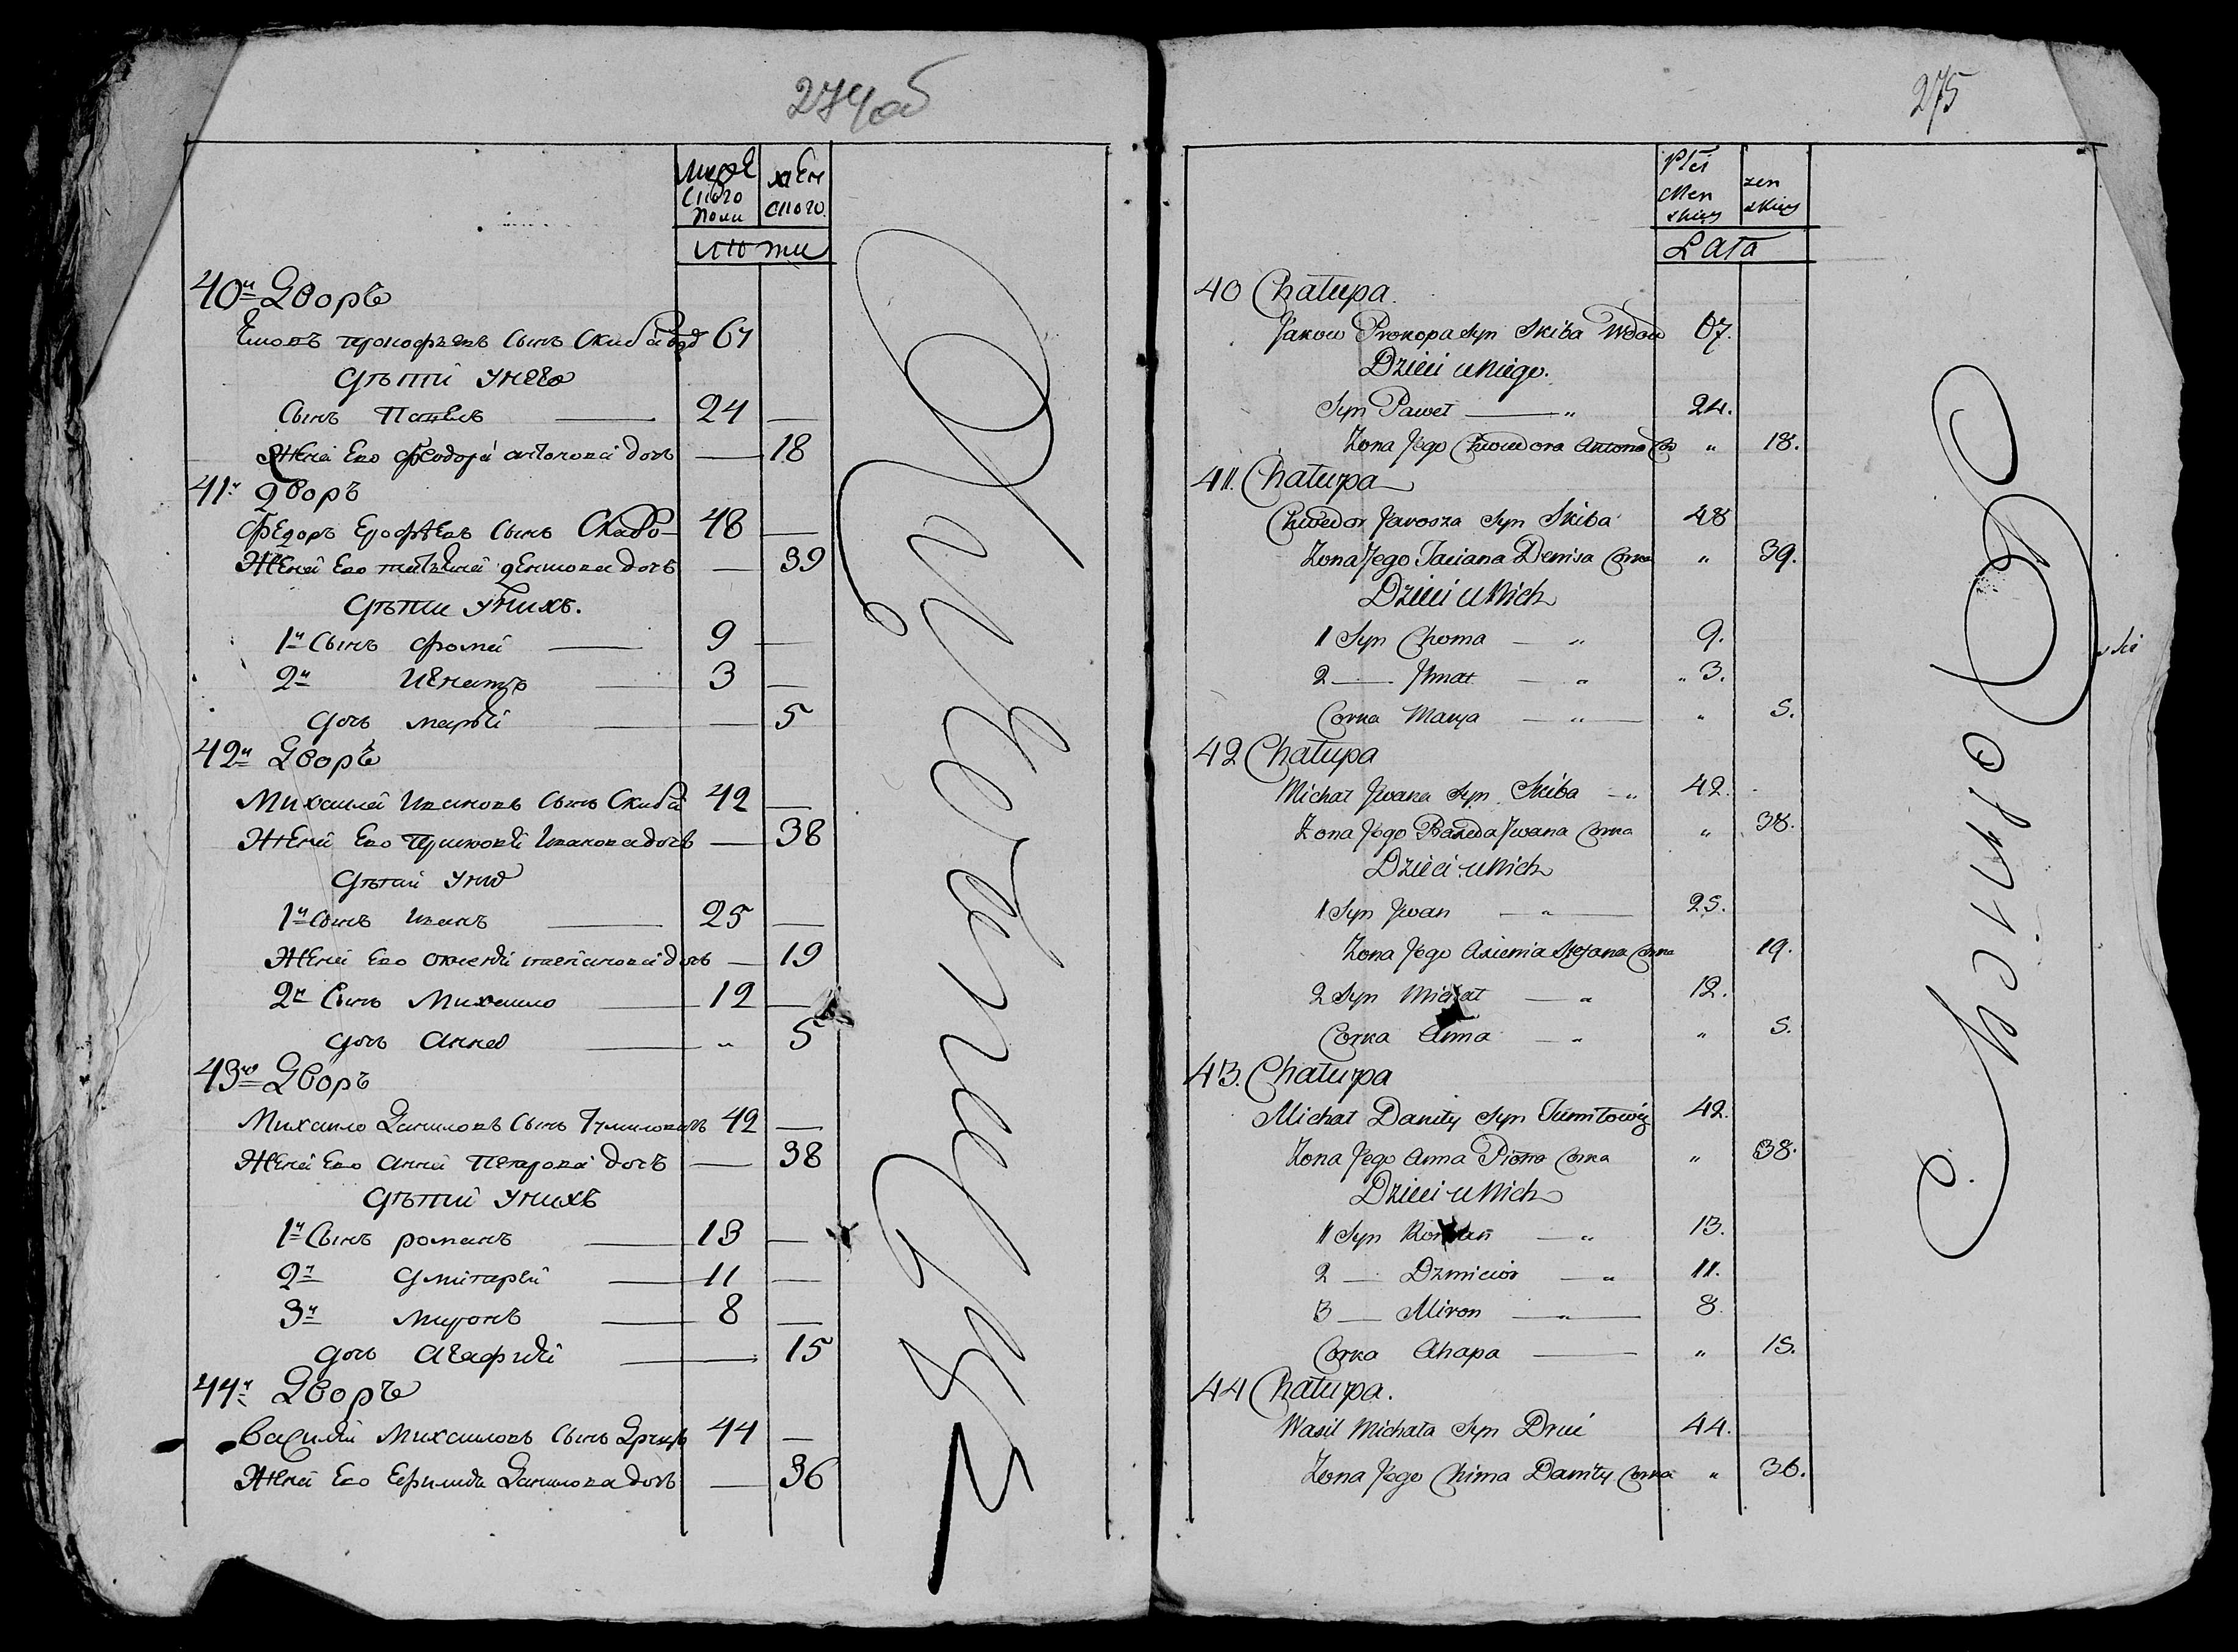 274об
мужеского полу
женского
лѣты
40й Дворъ
Яковъ Прокофьевъ сынъ Скиба вд 67
Дѣти у него
Сынъ Павелъ 24 —
Жена Ево Федора Антонова дочь — 18
41й Дворъ
Федоръ Ерофѣевъ сынъ Скаба 48 —
Жена Ево Татьяна Денисова дочь — 39
Дѣти у нихъ.
1й Сынъ Фома 9 —
2й Игнатъ 3 —
дочь Марья — 5
42й Дворъ
Михайла Ивановъ сынъ Скиба 42 —
Жена Ево Иванова дочь — 38
Дѣти у них
1й Сынъ Иванъ 25 —
Жена Ево Степанова дочь — 19
2й Сынъ Михаило 12 —
дочь Анна „ 5
43й Дворъ
Михаило Даниловъ сынъ 42 —
Жена Ево Анна Петрова дочь — 38
Дѣти у нихъ
1й Сынъ Романъ 13 —
2й Дмитрей 11 —
3й Миронъ 8 —
дочь Агафия — 15
44й Дворъ
Василий Михаиловъ сынъ 44 —
Жена Ево Данилова дочь — 36
275
Płci Męzkiey
żenskiey
Lata
40 Chałupa.
Jakow Prokopa Syn Skiba Wdow 67.
Dzieci u Niego.
Syn Paweł — „ 24.
Żona Jego Chwedora Antona Cor „ 18.
41. Chałupa
Chwedor Jarosza Syn Skiba 48
Żona Jego Taciana Denisa Corka „ 39.
Dzieci u Nich
1 Syn Choma — „ 9.
2 — Jhnat — „ „ 3.
Corka Marya — „ — „ 5.
42 Chałupa
Michał Jwana Syn Skiba — „ 42.
Żona Jego Jwana Corka „ 38.
Dzieci u Nich
1 Syn Jwan — „ — 25.
Żona Jego Axienia Stefana Corka 19.
2 Syn Michał — „ 12.
Corka Anna — „ „ 5.
43. Chałupa
Michał Daniły Syn Tumiłowicz 42.
Żona Jego Anna Piotra Corka „ 38.
Dzieci u Nich
1 Syn Roman — „ 13.
2 — Dzmicior — „ 11.
3 — Miron — „ — 8.
Corka Ahapa — „ 15.
44 Chałupa.
Wasil Michała Syn Druć 44.
Żona Jego Chima Daniły Corka „ 36.